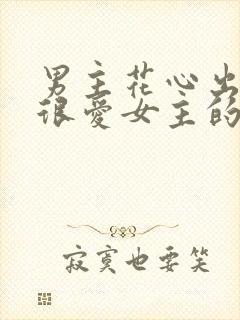 男主花心出
很爱女主的
寂寞也要笑